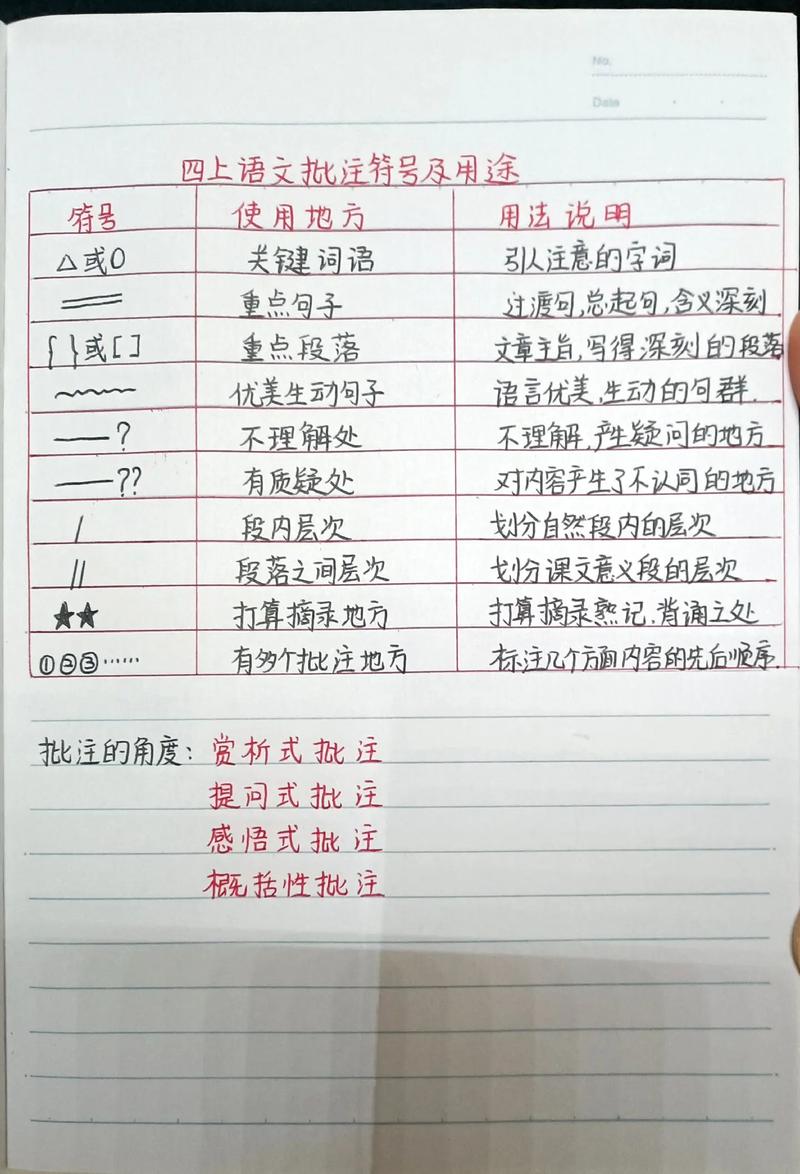 No.
Date
四上语文批注符号及用途
符号 使用地方 用法说明
△或○ 关键词语 引人注意的字词
═ 重点句子 过渡句,总起句,含义深刻
{ }或[ ] 重点段落 文章主旨,写得深刻的段落
﹏﹏ 优美生动句子 语言优美,生动的句群.
——? 不理解处 不理解,产生疑问的地方
——?? 有质疑处 对内容产生了不认同的地方
/ 段内层次 划分自然段内的层次
// 段落之间层次 划分课文意义段的层次
★★ 打算摘录地方 打算摘录熟记.背诵之处
①②③…… 有多个批注地方 标注几个方面内容的先后顺序.
批注的角度: 赏析式批注
提问式批注
感悟式批注
概括性批注